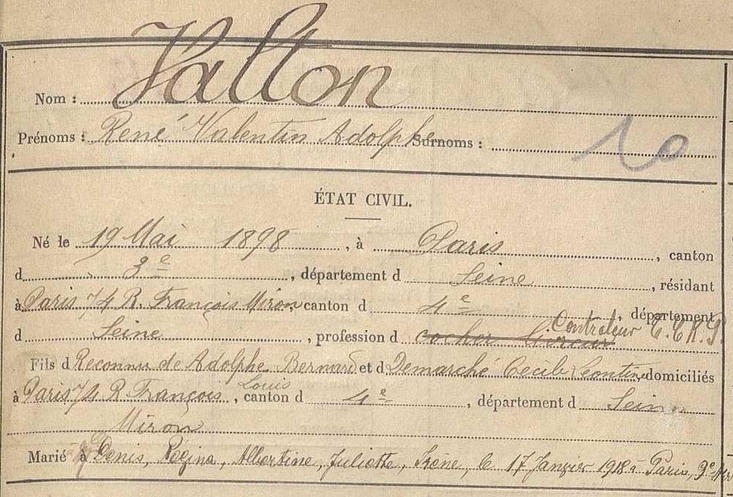 Nom : Vallon
Prénoms : René Valentin Adolphe Surnoms : 10
ÉTAT CIVIL.
Né le 19 Mai 1898, à Paris, canton
d 3e, département d Seine, résidant
à Paris 74 R. François Miron canton d 4e, département
d Seine, profession d cocher livreur Controleur T.C.R.P
Fils d Reconnu de Adolphe Bernard et d Demarché Cecile Léontine domiciliés
Louis
à Paris 74 R François, canton d 4e, département d Seine
Miron
Marié à Denis, Régina, Albertine, Juliette, Irène, le 17 Janvier 1918 à Paris, 9e